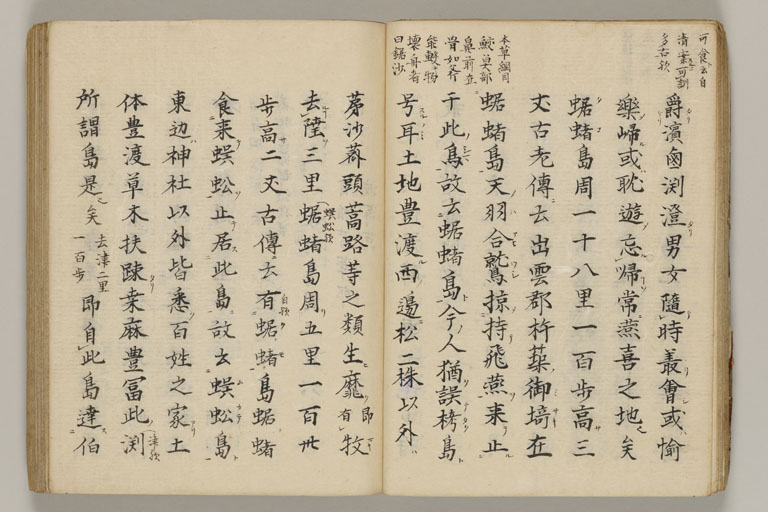 可食云自
清案可訓
多古歟
爵濱鹵渕澄男女隨時叢會或愉
樂歸或耽遊忘歸常燕喜之地矣
蜛蝫島周一十八里一百步高三
丈古老傳云出雲郡杵築御埼在
蜛蝫島天羽合鷲掠持飛燕来止
于此島故云蜛蝫島今人猶誤栲島
号耳土地豊渡西邊松二株以外
本草綱目
鮫魚部
鼻前在
骨如斧
能擊物
壊舟者
曰鋸沙
茅沙薺頭蒿路等之類生靡即有牧
去陸三里蜛蝫島周五里一百卅
蜈蚣歟
步高二丈古傳云有蜛蝫島蜛蝫
自歟
食来蜈蚣止居此島故云蜈蚣島
東边神社以外皆悉百姓之家土
体豊渡草木扶踈桒麻豊冨此渕
津歟
所謂島是矣去津二里一百步即自此島達伯